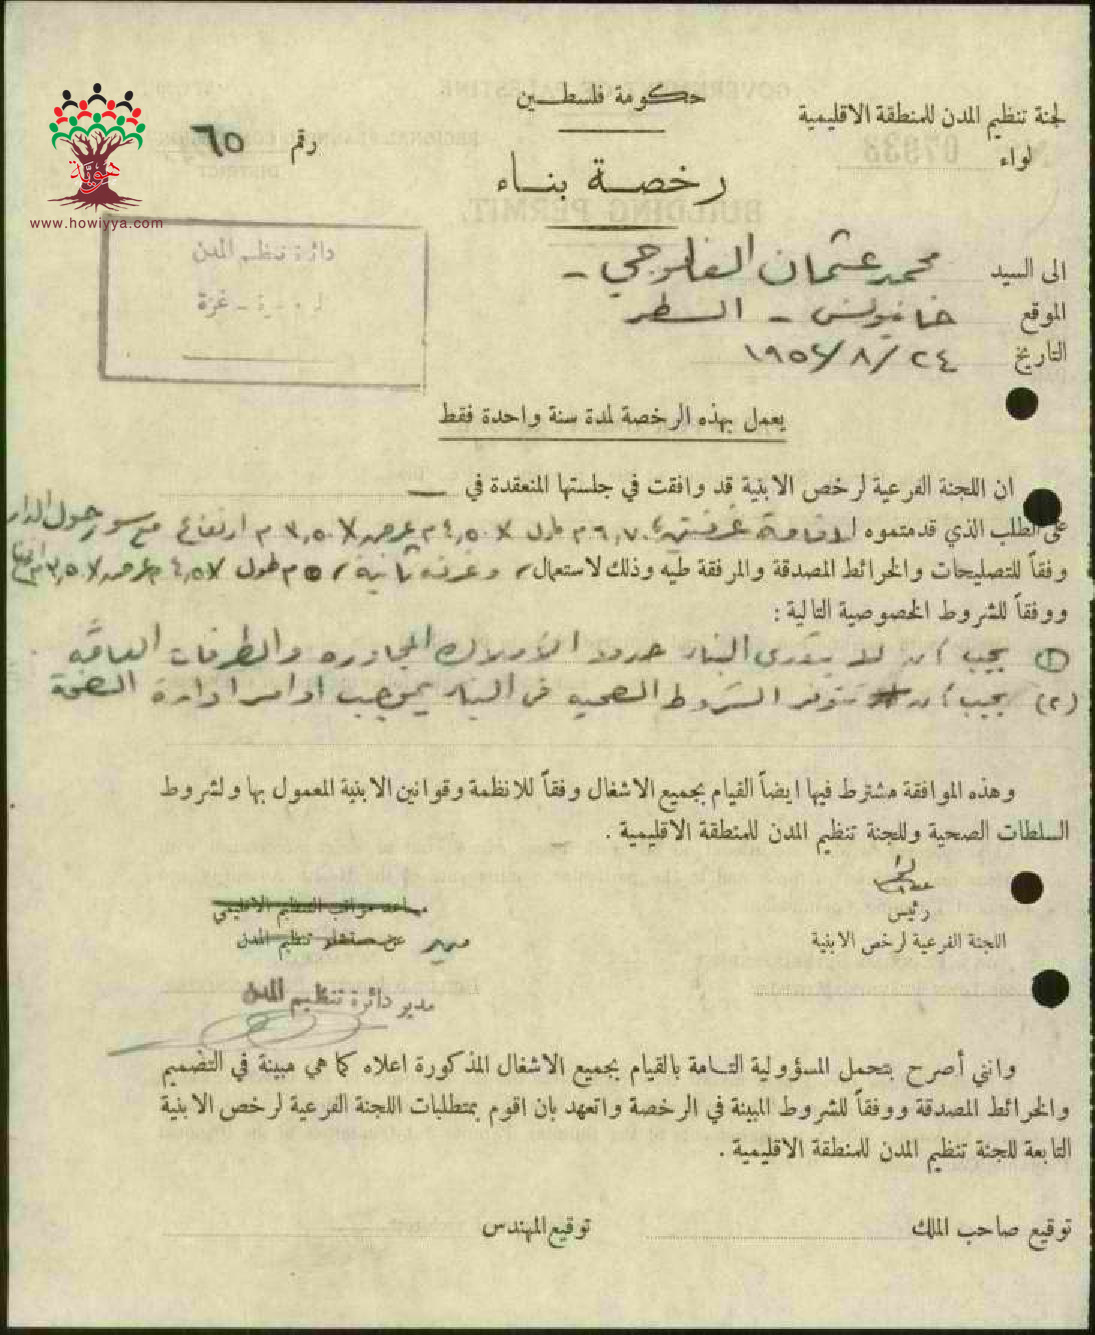 حكومة فلسطين
لجنة تنظيم المدن للمنطقة الاقليمية
لواء
رقم ٦٥
رخصة بناء
هوية
www.howiyya.com
دائرة تنظيم المدن
غزة
الى السيد محمد عثمان الفلوجي -
الموقع خانيونس - السطر
التاريخ ٢٤/٨/١٩٥٤
يعمل بهذه الرخصة لمدة سنة واحدة فقط
ان اللجنة الفرعية لرخص الابنية قد وافقت في جلستها المنعقدة في —
على الطلب الذي قدمتموه لاقامة غرفتين ٦,٧٠ م طول × ٤,٥٠ م عرض × ٣,٥٠ م ارتفاع مع سور حول الدار
وفقاً للتصليحات والخرائط المصدقة والمرفقة طيه وذلك لاستعمال وغرفة ثانية ٥ م طول × ٤,٥ م عرض × ٣,٥ م
ووفقاً للشروط الخصوصية التالية :
(١) يجب ان لا يتعدى البناء حدود الأملاك المجاوره والطرقات العامه
(٢) يجب ان تتوفر الشروط الصحيه في البناء بموجب اوامر ادارة الصحة
وهذه الموافقة مشترط فيها ايضاً القيام بجميع الاشغال وفقاً للانظمة وقوانين الابنية المعمول بها ولشروط
السلطات الصحية وللجنة تنظيم المدن للمنطقة الاقليمية .
رئيس
اللجنة الفرعية لرخص الابنية
مساعد مراقب التنظيم الاقليمي
مدير عن مستشار تنظيم المدن
مدير دائرة تنظيم المدن
وانني أصرح بتحمل المسؤولية التامة بالقيام بجميع الاشغال المذكورة اعلاه كما هي مبينة في التصميم
والخرائط المصدقة ووفقاً للشروط المبينة في الرخصة واتعهد بان اقوم بمتطلبات اللجنة الفرعية لرخص الابنية
التابعة للجنة تنظيم المدن للمنطقة الاقليمية .
توقيع صاحب الملك
توقيع المهندس